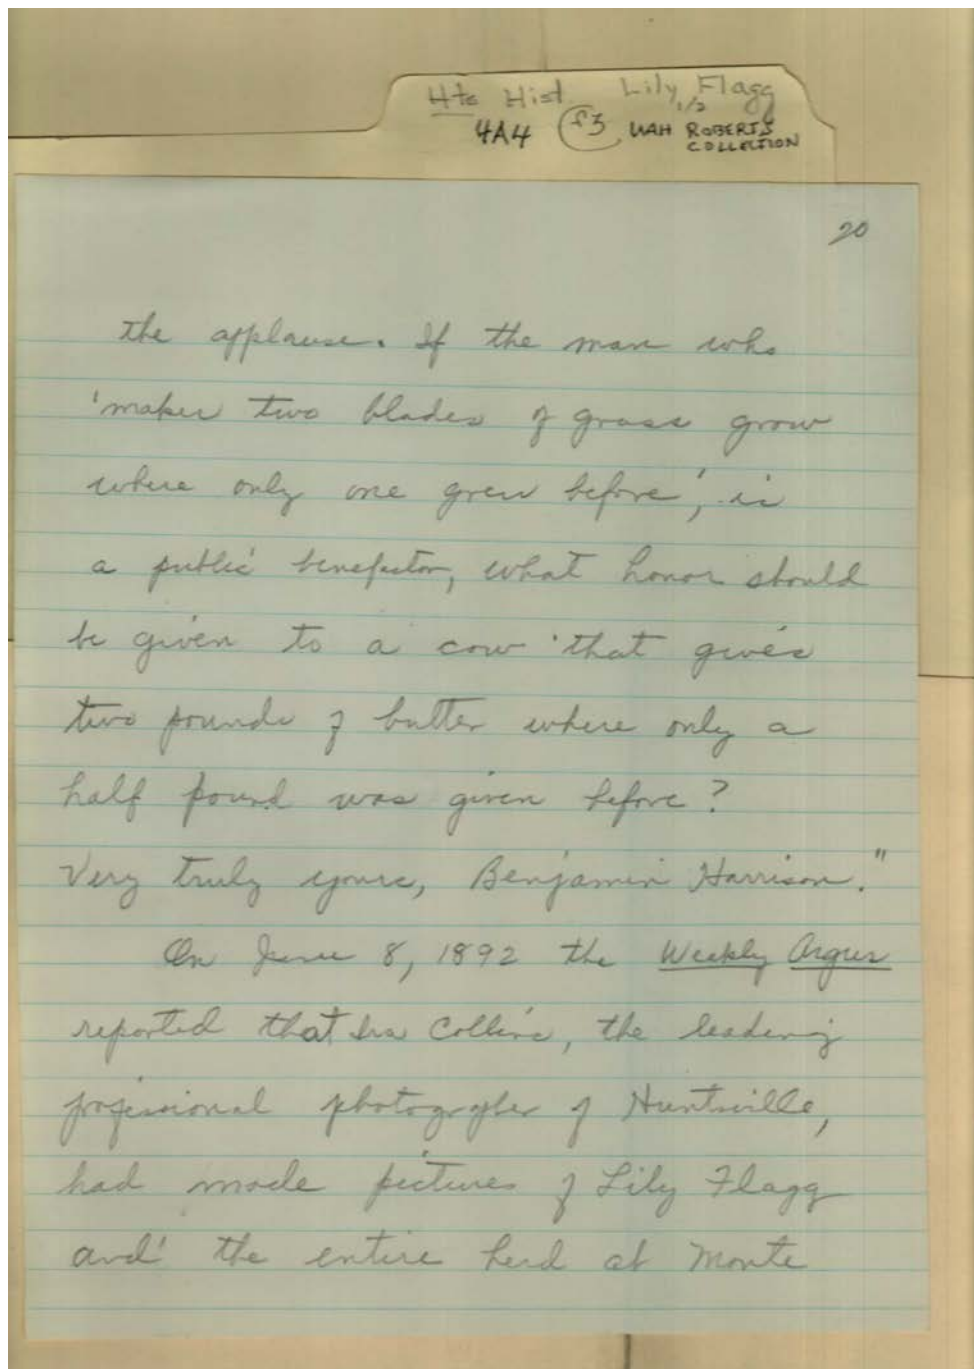 Hts Hist Lily Flagg
1/2
4A4 f3 UAH ROBERTS
COLLECTION
20
the applause. If the man who
'makes two blades of grass grow
where only one grew before', is
a public benefactor, what honor should
be given to a cow that gives
two pounds of butter where only a
half pound was given before?
Very truly yours, Benjamin Harrison."
On June 8, 1892 the Weekly Argus
reported that Ira Collins, the leading
professional photographer of Huntsville,
had made pictures of Lily Flagg
and the entire herd at Monte